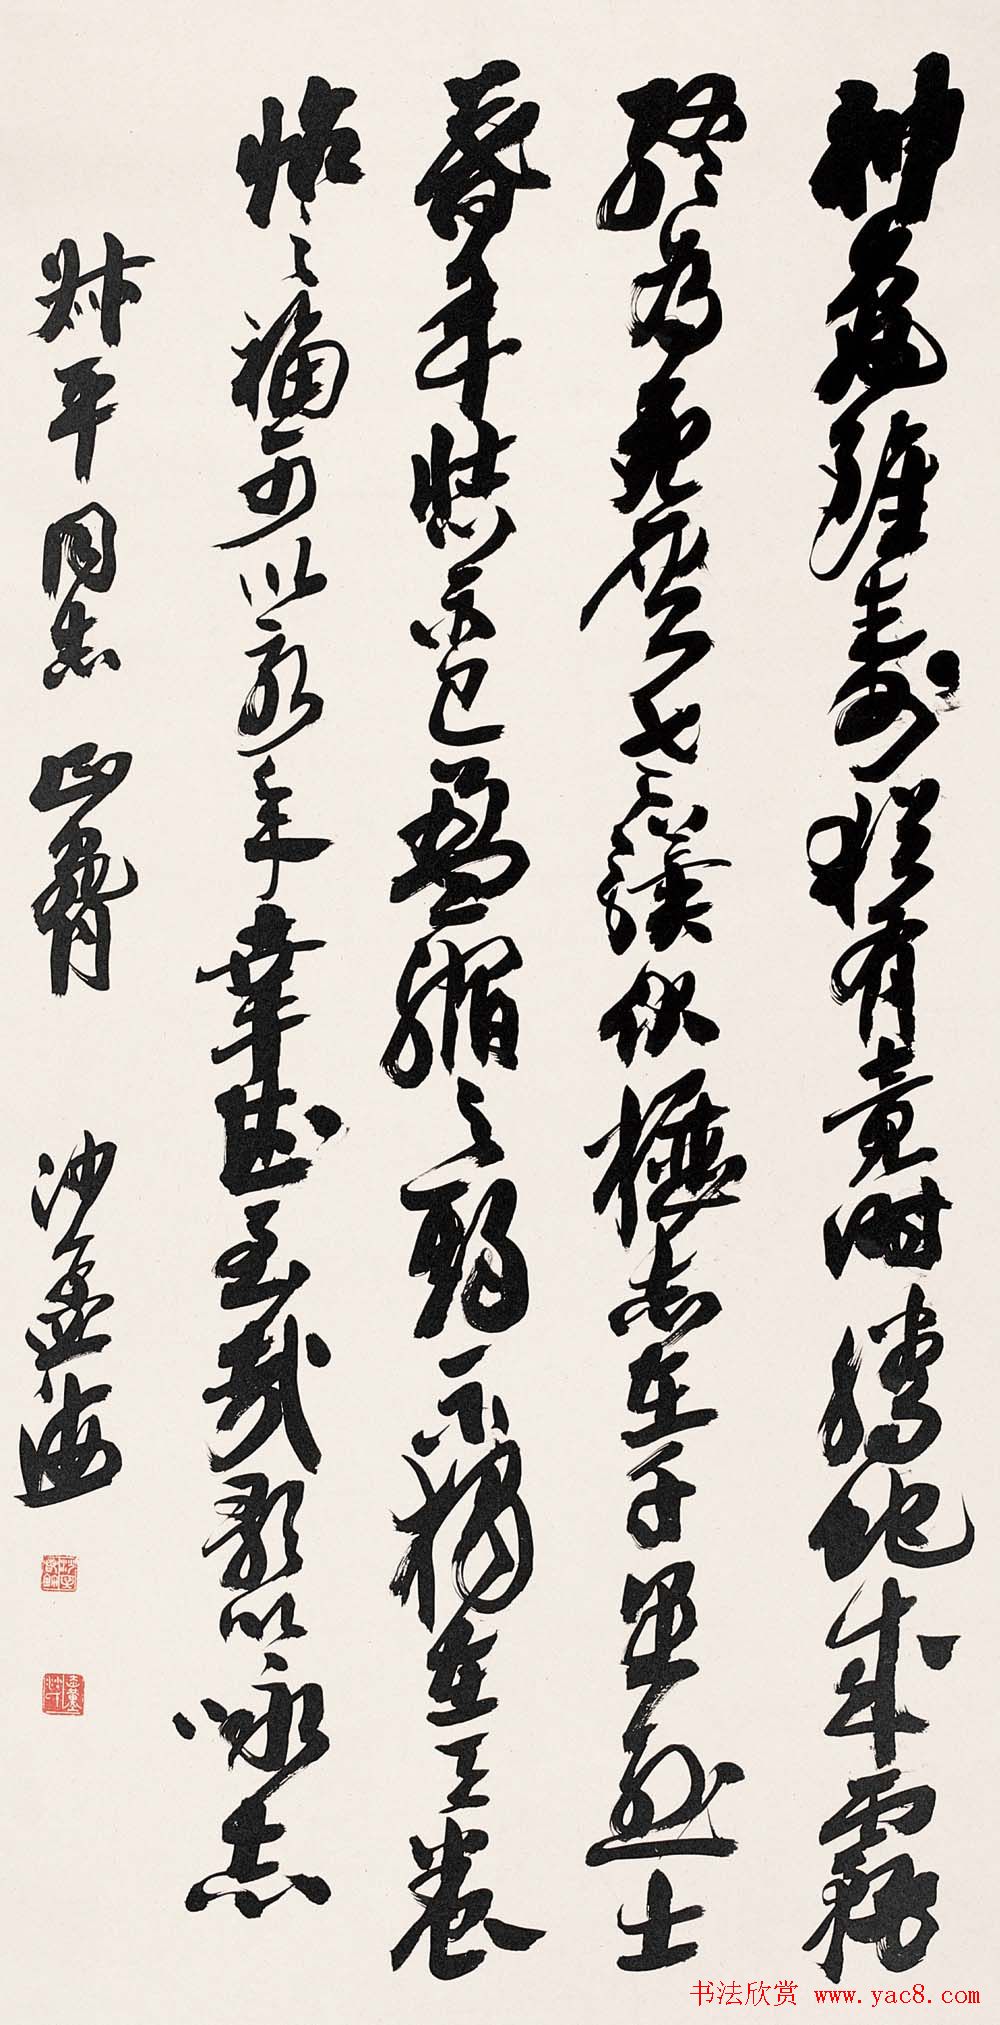 神龜雖壽猶有竟時騰蛇成霧
終為死灰老驥伏櫪志在千里烈士
暮年壯心不已盈縮之期不獨在天養
怡之福可以永年幸甚至哉歌以詠志
叔平同志 正 沙孟海
书法欣赏 www.yac8.com